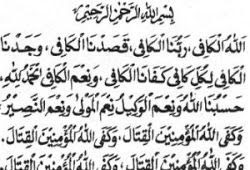 بِسْمِ اللّٰهِ الرَّحْمٰنِ الرَّحِيْمِ
اَللّٰهُ الْكَافِى، رَبُّنَا الْكَافِى، قَصَدْنَا الْكَافِى، وَجَدْنَا
الْكَافِى لِكُلِّ كَافِى كَفَانَا الْكَافِى، وَنِعْمَ الْكَافِى اَلْحَمْدُ لِلّٰهِ.
حَسْبُنَا اللّٰهُ وَنِعْمَ الْوَكِيْلُ نِعْمَ الْمَوْلٰى وَنِعْمَ النَّصِيْرُ،
وَكَفَى اللّٰهُ الْمُؤْمِنِيْنَ الْقِتَالَ. وَكَفَى اللّٰهُ الْمُؤْمِنِيْنَ الْقِتَالَ،
وَكَفَى اللّٰهُ الْمُؤْمِنِيْنَ الْقِتَالَ، وَكَفَى اللّٰهُ الْمُؤْمِنِيْنَ الْقِتَالَ.